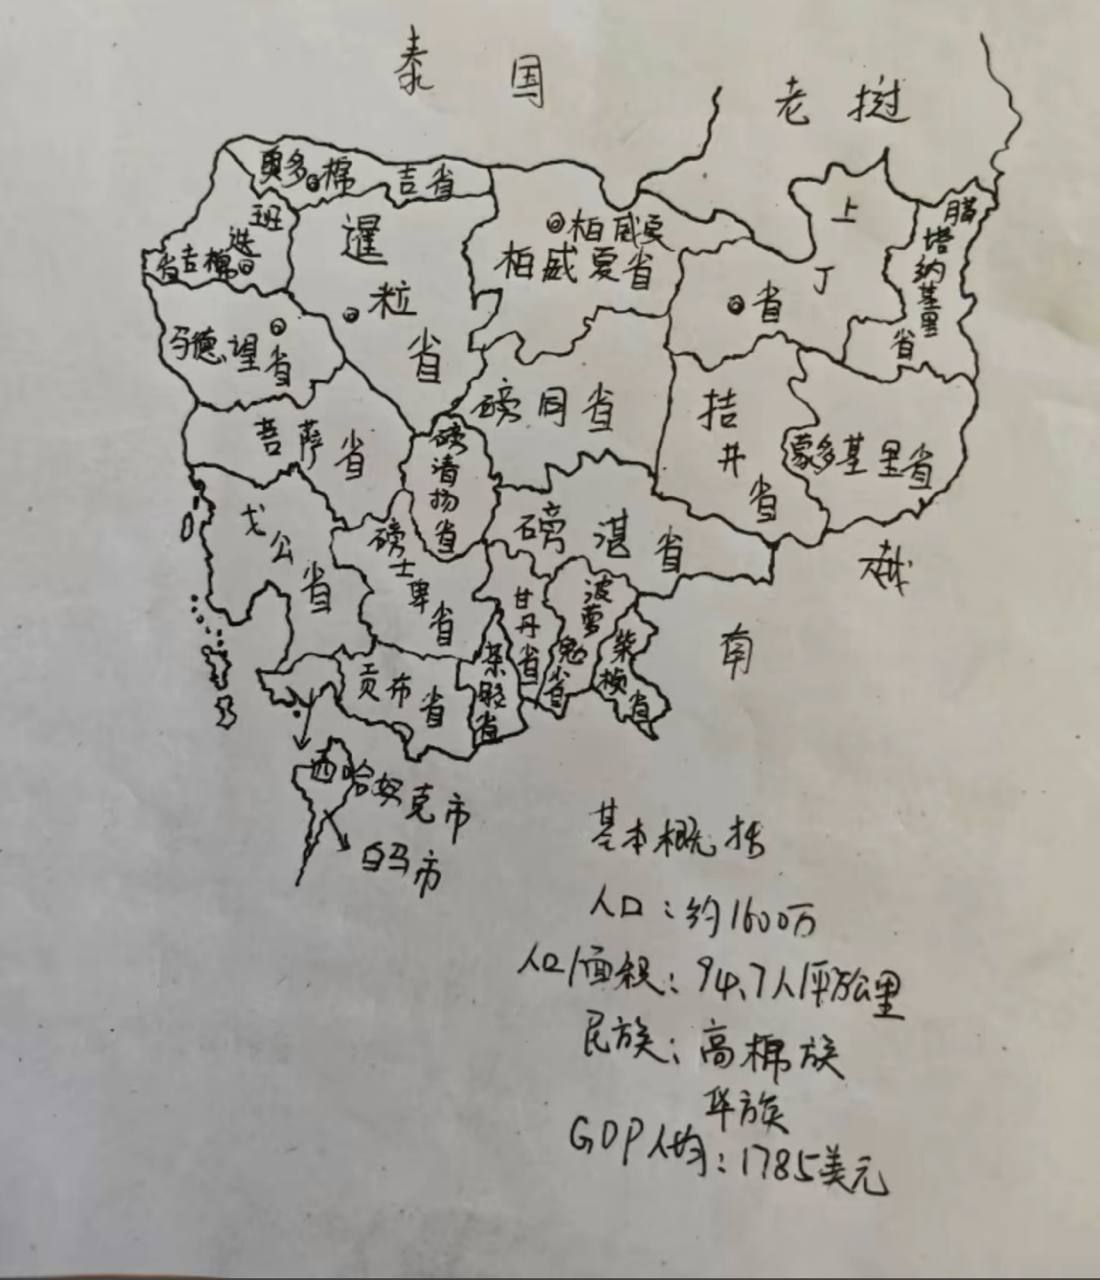 泰国
老挝
奥多棉吉省
班迭吉棉省
暹粒省
柏威夏
柏威夏省
上丁省
腊塔纳基里省
马德望省
磅同省
拮井省
蒙多基里省
菩萨省
磅清扬省
戈公省
磅士卑省
磅湛省
甘丹省
波萝勉省
柴桢省
茶胶省
贡布省
越南
西哈努克市
白马市
基本概括
人口：约1600万
人口/面积：94.7人/平方公里
民族：高棉族
华族
GDP人均：1785美元